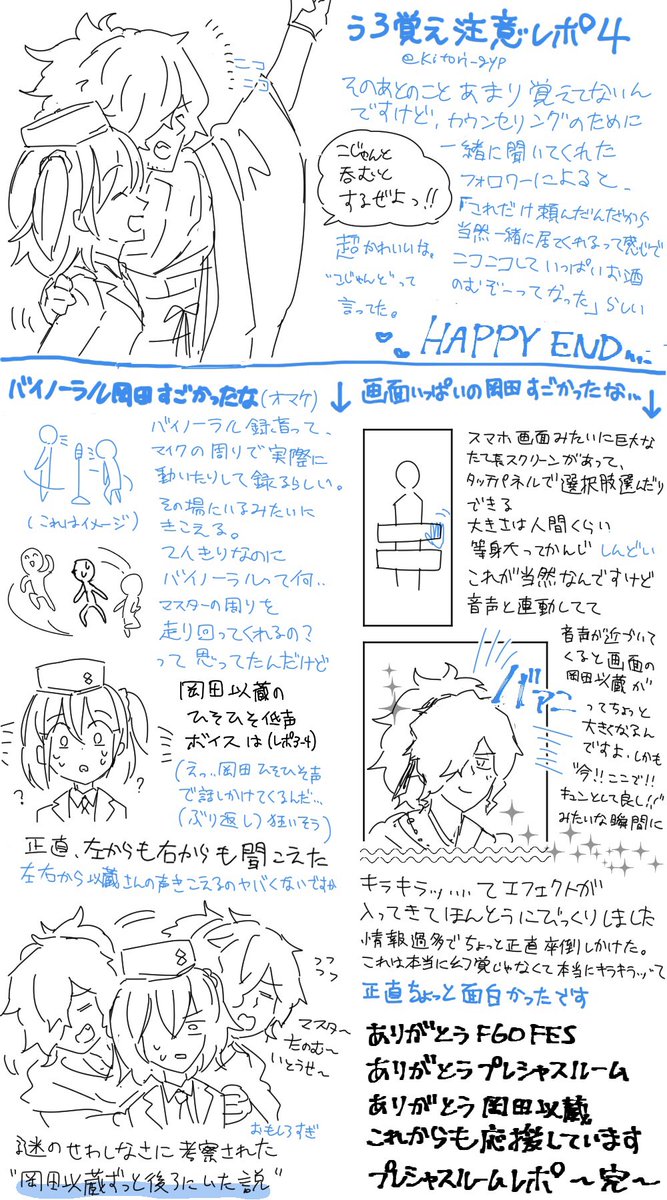 うろ覚え注意レポ4
@kitori_gyp
ニコ
ニコ
そのあとのことあまり覚えてないん
ですけど、カウンセリングのために
一緒に聞いてくれた
フォロワーによると、
「これだけ頼んだんだから
当然一緒に居てくれるって感じで
ニコニコしていっぱいお酒
のむぞーってなった」らしい
こじゃんと
呑むと
するぜよっ!!
超かわいいな。
"こじゃんと"って
言ってた。
HAPPY END
バイノーラル岡田すごかったな(オマケ)
バイノーラル録音って、
マイクの周りで実際に
動いたりして録るらしい。
その場にいるみたいに
きこえる。
2人きりなのに
バイノーラルって何..
マスターの周りを
走り回ってくれるの?
って思ってたんだけど
(これはイメージ)
岡田以蔵の
ひそひそ低声
ボイスは(レポ3-4)
(えっ...岡田ひそひそ声
で話しかけてくるんだ...
(ぶり返し)狂いそう)
8
?
?
正直、左からも右からも聞こえた
左右から以蔵さんの声きこえるのヤバくないですか
フフフ
8
マスタ〜
たのむ〜
いとうせ〜
おもしろすぎ
謎のせわしなさに考察された
"岡田以蔵ずっと後ろにいた説"
画面いっぱいの岡田すごかったな...
スマホ画面みたいに巨大な
たて長スクリーンがあって、
タッチパネルで選択肢選んだり
できる
大きさは人間くらい
等身大ってかんじ しんどい
これが当然なんですけど
音声と連動してて
音声が近づいて
くると画面の
岡田以蔵が
バァン
ってちょっと
大きくなるん
ですよ、しかも
"今!!ここで!!
キュンとして良し!!"
みたいな瞬間に
キラキラッ....てエフェクトが
入ってきてほんとうにびっくりしました
情報過多でちょっと正直卒倒しかけた。
これは本当に幻覚じゃなくて本当にキラキラッ...って
正直ちょっと面白かったです
ありがとう FGO FES
ありがとう プレシャスルーム
ありがとう 岡田以蔵
これからも応援しています
プレシャスルームレポ 〜完〜